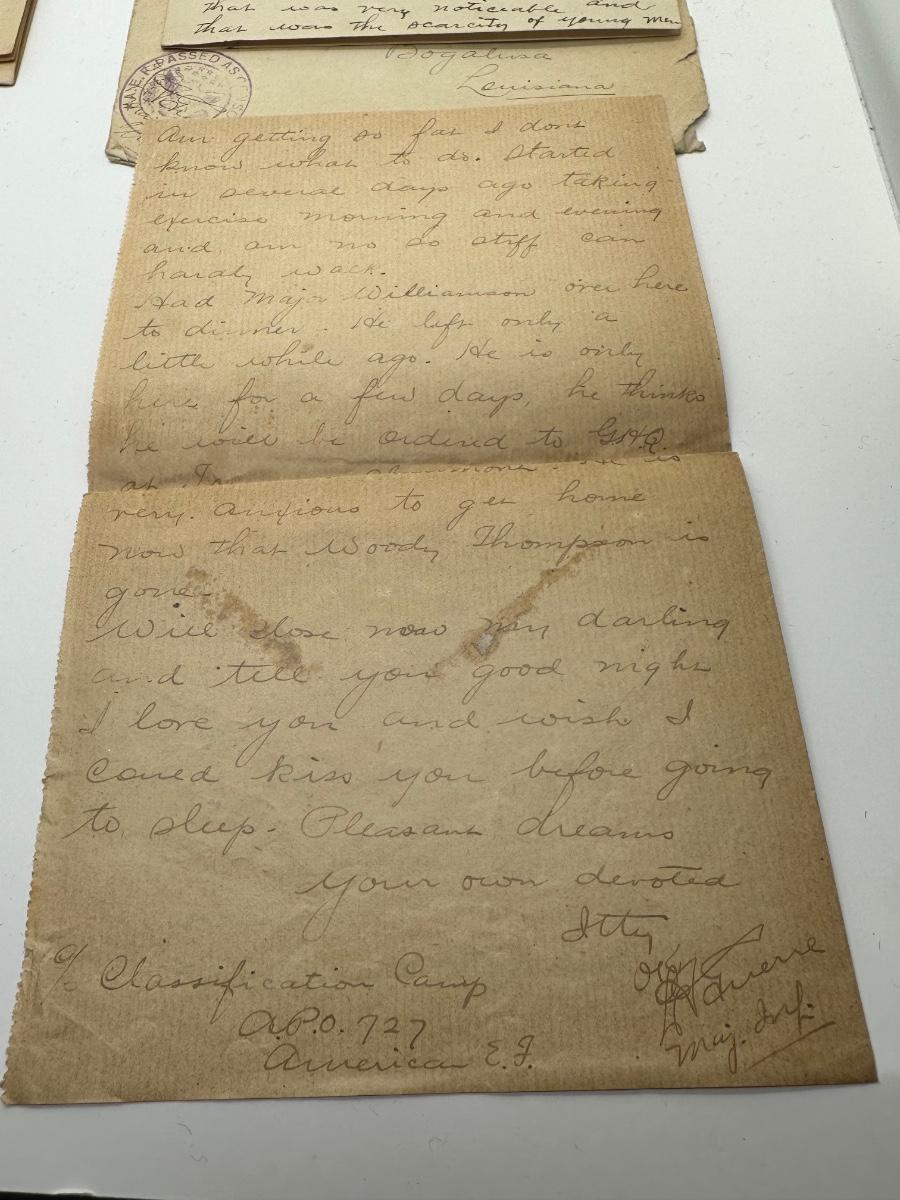 that was very noticeable and
that was the scarcity of young men
A.E.F. PASSED AS
Bogalusa
Louisiana
Am getting so fat I dont
know what to do. Started
in several days ago taking
exercise morning and evening
and am no so stiff can
hardly walk.
Had Major Williamson over here
to dinner. He left only a
little while ago. He is only
here for a few days, he thinks
he will be ordered to G.H.Q.
at He is
very anxious to get home
now that Woody Thompson is
gone.
Will close now my darling
and tell you good night
I love you and wish I
could kiss you before going
to sleep. Pleasant dreams
Your own devoted
Itty
c/o Classification Camp
A.P.O. 727
American E.F.
OK
Maj. Inf.